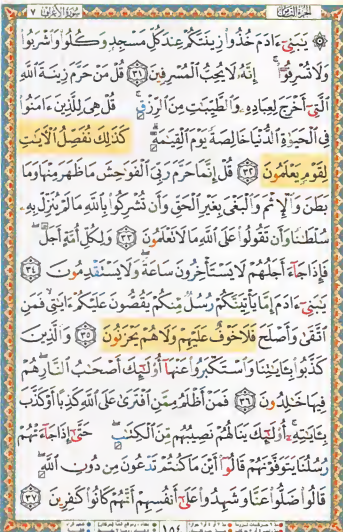 الجزء الثامن
سورة الأعراف ٧
۞ يَٰبَنِىٓ ءَادَمَ خُذُوا۟ زِينَتَكُمْ عِندَ كُلِّ مَسْجِدٍ وَكُلُوا۟ وَٱشْرَبُوا۟
وَلَا تُسْرِفُوٓا۟ ۚ إِنَّهُۥ لَا يُحِبُّ ٱلْمُسْرِفِينَ ٣١ قُلْ مَنْ حَرَّمَ زِينَةَ ٱللَّهِ
ٱلَّتِىٓ أَخْرَجَ لِعِبَادِهِۦ وَٱلطَّيِّبَٰتِ مِنَ ٱلرِّزْقِ ۚ قُلْ هِىَ لِلَّذِينَ ءَامَنُوا۟
فِى ٱلْحَيَوٰةِ ٱلدُّنْيَا خَالِصَةً يَوْمَ ٱلْقِيَٰمَةِ ۗ كَذَٰلِكَ نُفَصِّلُ ٱلْءَايَٰتِ
لِقَوْمٍ يَعْلَمُونَ ٣٢ قُلْ إِنَّمَا حَرَّمَ رَبِّىَ ٱلْفَوَٰحِشَ مَا ظَهَرَ مِنْهَا وَمَا
بَطَنَ وَٱلْإِثْمَ وَٱلْبَغْىَ بِغَيْرِ ٱلْحَقِّ وَأَن تُشْرِكُوا۟ بِٱللَّهِ مَا لَمْ يُنَزِّلْ بِهِۦ
سُلْطَٰنًا وَأَن تَقُولُوا۟ عَلَى ٱللَّهِ مَا لَا تَعْلَمُونَ ٣٣ وَلِكُلِّ أُمَّةٍ أَجَلٌ ۖ
فَإِذَا جَآءَ أَجَلُهُمْ لَا يَسْتَأْخِرُونَ سَاعَةً ۖ وَلَا يَسْتَقْدِمُونَ ٣٤
يَٰبَنِىٓ ءَادَمَ إِمَّا يَأْتِيَنَّكُمْ رُسُلٌ مِّنكُمْ يَقُصُّونَ عَلَيْكُمْ ءَايَٰتِى ۙ فَمَنِ
ٱتَّقَىٰ وَأَصْلَحَ فَلَا خَوْفٌ عَلَيْهِمْ وَلَا هُمْ يَحْزَنُونَ ٣٥ وَٱلَّذِينَ
كَذَّبُوا۟ بِـَٔايَٰتِنَا وَٱسْتَكْبَرُوا۟ عَنْهَآ أُو۟لَٰٓئِكَ أَصْحَٰبُ ٱلنَّارِ ۖ هُمْ
فِيهَا خَٰلِدُونَ ٣٦ فَمَنْ أَظْلَمُ مِمَّنِ ٱفْتَرَىٰ عَلَى ٱللَّهِ كَذِبًا أَوْ كَذَّبَ
بِـَٔايَٰتِهِۦٓ ۚ أُو۟لَٰٓئِكَ يَنَالُهُمْ نَصِيبُهُم مِّنَ ٱلْكِتَٰبِ ۖ حَتَّىٰٓ إِذَا جَآءَتْهُمْ
رُسُلُنَا يَتَوَفَّوْنَهُمْ قَالُوٓا۟ أَيْنَ مَا كُنتُمْ تَدْعُونَ مِن دُونِ ٱللَّهِ ۖ
قَالُوا۟ ضَلُّوا۟ عَنَّا وَشَهِدُوا۟ عَلَىٰٓ أَنفُسِهِمْ أَنَّهُمْ كَانُوا۟ كَٰفِرِينَ ٣٧
١٥٤